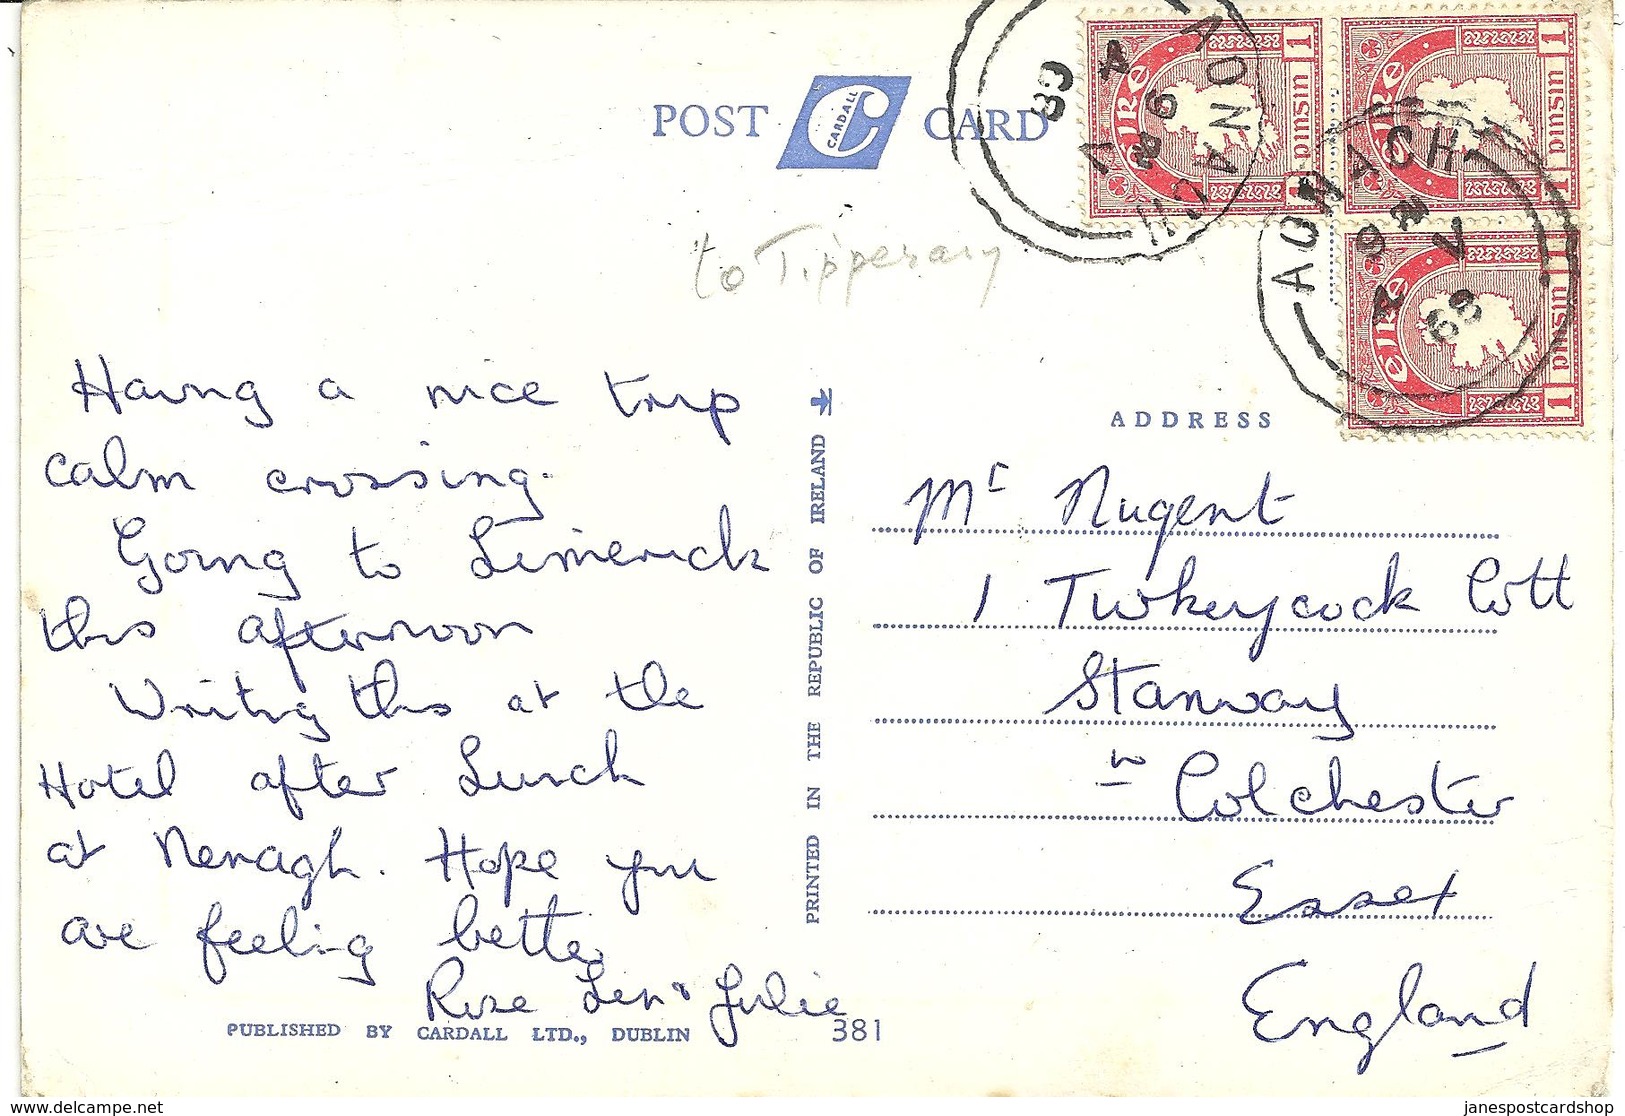 POST CARDALL CARD
AONACH
AONACH
68
69
1 pinsin
éire
1 pinsin
éire
1 pinsin
éire
to Tipperary
Having a nice trip
calm crossing.
Going to Limerick
this afternoon
Writing this at the
Hotel after Lunch
at Nenagh. Hope you
are feeling better
Rose Len & Julie
PUBLISHED BY CARDALL LTD., DUBLIN 381
PRINTED IN THE REPUBLIC OF IRELAND
ADDRESS
Mr Nugent
1 Turkeycock Cott
Stanway
nr Colchester
Essex
England
delcampe.net
janespostcardshop